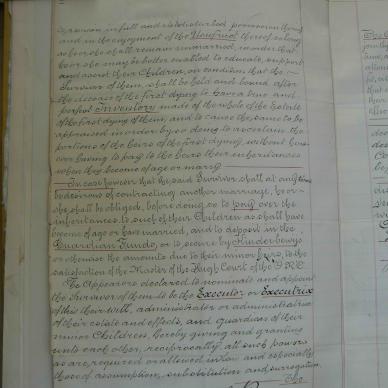 remain in full and undisturbed possession thereof
and in the enjoyment of the Usufruct thereof so long
as he or she shall remain unmarried, in order that
he or she may be better enabled to educate, support
and assist their Children, on condition that the
Survivor of them, shall be held and bound after
the decease of the first dying to have a true and
perfect Inventory made of the whole of the Estate
of the first dying of them, and to cause the same to be
appraised in order by so doing to ascertain the
portions of the heirs of the first dying, without how-
ever having to pay to the heirs their inheritances
when they become of age or marry
In case however that the said Survivor shall at any time
be desirous of contracting another marriage, he or
she shall be obliged, before doing so to pay over the
inheritances to such of their Children as shall have
become of age or have married, and to deposit in the
Guardian Funds, or to secure by Kinderbewys
or otherwise the amounts due to their minor heirs, to the
satisfaction of the Master of the High Court of the
The Appearers declared to nominate and appoint
the Survivor of them to be the Executor or Executrix
of this their will, administrator or administratrix
of their estate and effects, and guardian of their
minor Children, hereby giving and granting
unto each other, reciprocally, all such powers
as are required or allowed in law and especially
those of assumption, substitution and surrogation
The